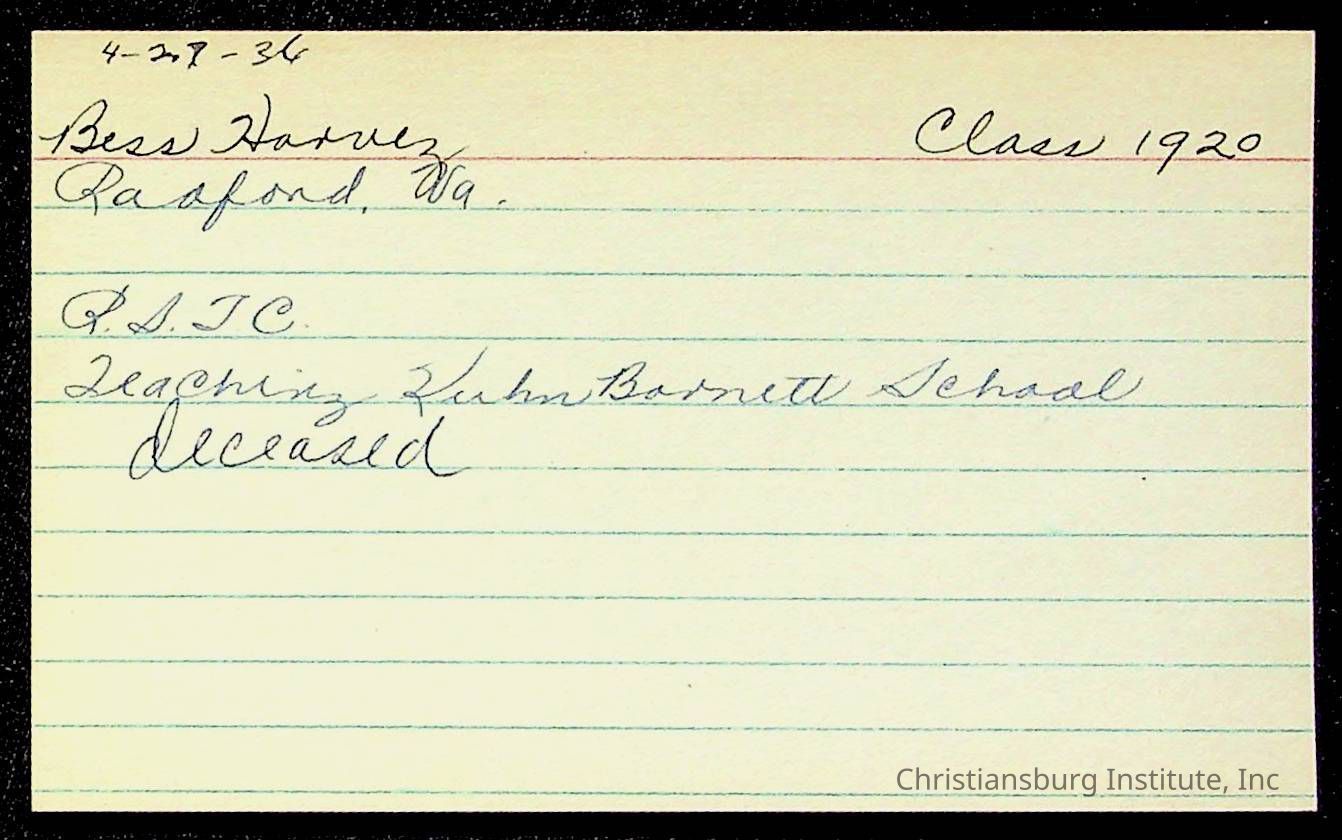 4-29-36
Bess Harvey Class 1920
Radford, Va.
R.S.T.C.
Teaching Kuhn Barnett School
deceased
Christiansburg Institute, Inc